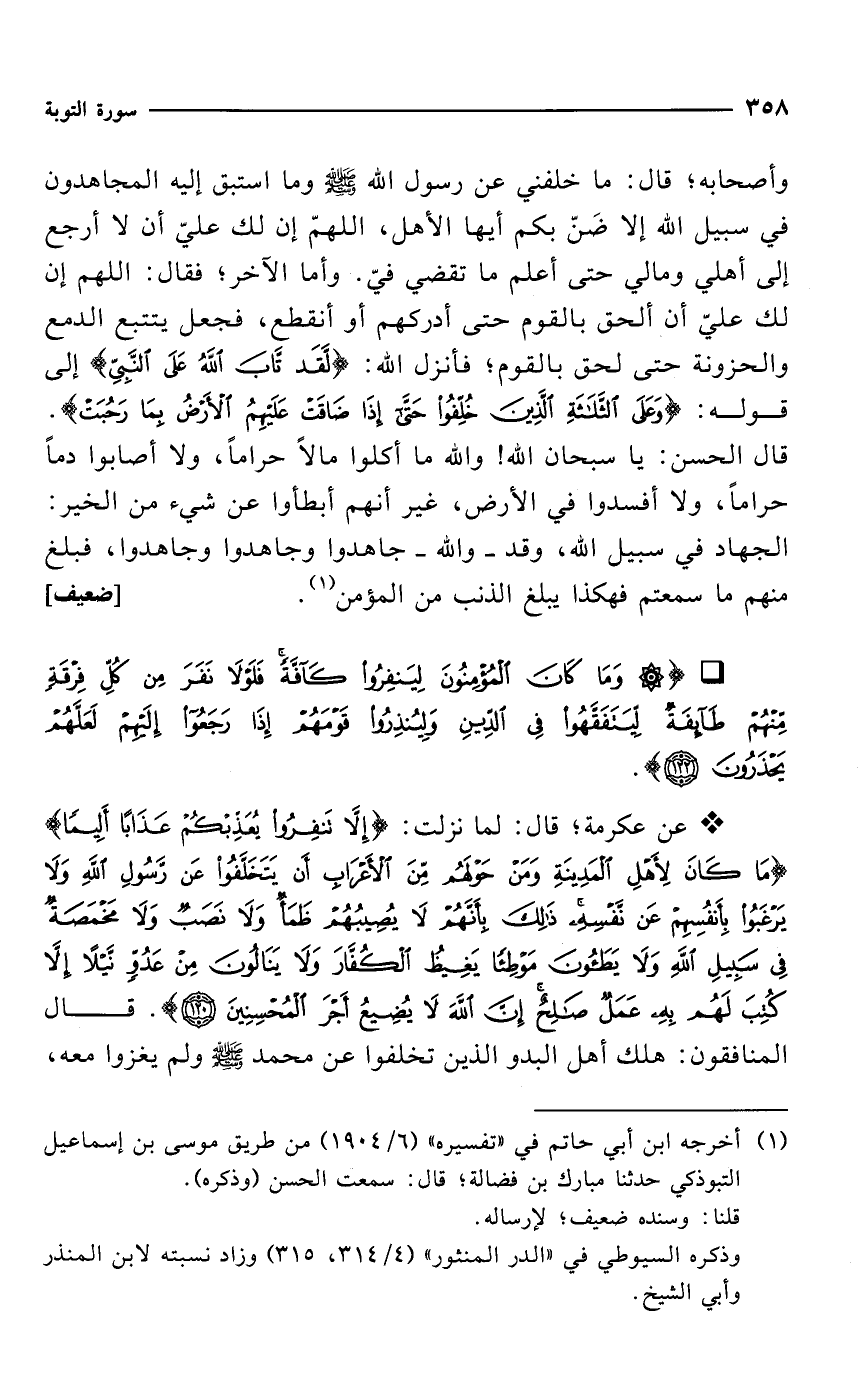 ٣٥٨ سورة التوبة
وأصحابه؛ قال: ما خلفني عن رسول الله ﷺ وما استبق إليه المجاهدون
في سبيل الله إلا ضَنّ بكم أيها الأهل، اللهمّ إن لك عليّ أن لا أرجع
إلى أهلي ومالي حتى أعلم ما تقضي فيّ. وأما الآخر؛ فقال: اللهم إن
لك عليّ أن ألحق بالقوم حتى أدركهم أو أنقطع، فجعل يتتبع الدمع
والحزونة حتى لحق بالقوم؛ فأنزل الله: ﴿لَّقَد تَّابَ ٱللَّهُ عَلَى ٱلنَّبِيِّ﴾ إلى
قولـه: ﴿وَعَلَى ٱلثَّلَٰثَةِ ٱلَّذِينَ خُلِّفُوا۟ حَتَّىٰٓ إِذَا ضَاقَتْ عَلَيْهِمُ ٱلْأَرْضُ بِمَا رَحُبَتْ﴾.
قال الحسن: يا سبحان الله! والله ما أكلوا مالاً حراماً، ولا أصابوا دماً
حراماً، ولا أفسدوا في الأرض، غير أنهم أبطأوا عن شيء من الخير:
الجهاد في سبيل الله، وقد ـ والله ـ جاهدوا وجاهدوا وجاهدوا، فبلغ
منهم ما سمعتم فهكذا يبلغ الذنب من المؤمن(١). [ضعيف]
❑ ﴿۞ وَمَا كَانَ ٱلْمُؤْمِنُونَ لِيَنفِرُوا۟ كَآفَّةً ۚ فَلَوْلَا نَفَرَ مِن كُلِّ فِرْقَةٍ
مِّنْهُمْ طَآئِفَةٌ لِّيَتَفَقَّهُوا۟ فِى ٱلدِّينِ وَلِيُنذِرُوا۟ قَوْمَهُمْ إِذَا رَجَعُوٓا۟ إِلَيْهِمْ لَعَلَّهُمْ
يَحْذَرُونَ ١٢٢﴾.
❖ عن عكرمة؛ قال: لما نزلت: ﴿إِلَّا تَنفِرُوا۟ يُعَذِّبْكُمْ عَذَابًا أَلِيمًا﴾
﴿مَا كَانَ لِأَهْلِ ٱلْمَدِينَةِ وَمَنْ حَوْلَهُم مِّنَ ٱلْأَعْرَابِ أَن يَتَخَلَّفُوا۟ عَن رَّسُولِ ٱللَّهِ وَلَا
يَرْغَبُوا۟ بِأَنفُسِهِمْ عَن نَّفْسِهِۦ ۚ ذَٰلِكَ بِأَنَّهُمْ لَا يُصِيبُهُمْ ظَمَأٌ وَلَا نَصَبٌ وَلَا مَخْمَصَةٌ
فِى سَبِيلِ ٱللَّهِ وَلَا يَطَـُٔونَ مَوْطِئًا يَغِيظُ ٱلْكُفَّارَ وَلَا يَنَالُونَ مِنْ عَدُوٍّ نَّيْلًا إِلَّا
كُتِبَ لَهُم بِهِۦ عَمَلٌ صَٰلِحٌ ۚ إِنَّ ٱللَّهَ لَا يُضِيعُ أَجْرَ ٱلْمُحْسِنِينَ ١٢٠﴾. قـال
المنافقون: هلك أهل البدو الذين تخلفوا عن محمد ﷺ ولم يغزوا معه،
(١) أخرجه ابن أبي حاتم في «تفسيره» (٦/ ١٩٠٤) من طريق موسى بن إسماعيل
التبوذكي حدثنا مبارك بن فضالة؛ قال: سمعت الحسن (وذكره).
قلنا: وسنده ضعيف؛ لإرساله.
وذكره السيوطي في «الدر المنثور» (٤/ ٣١٤، ٣١٥) وزاد نسبته لابن المنذر
وأبي الشيخ.